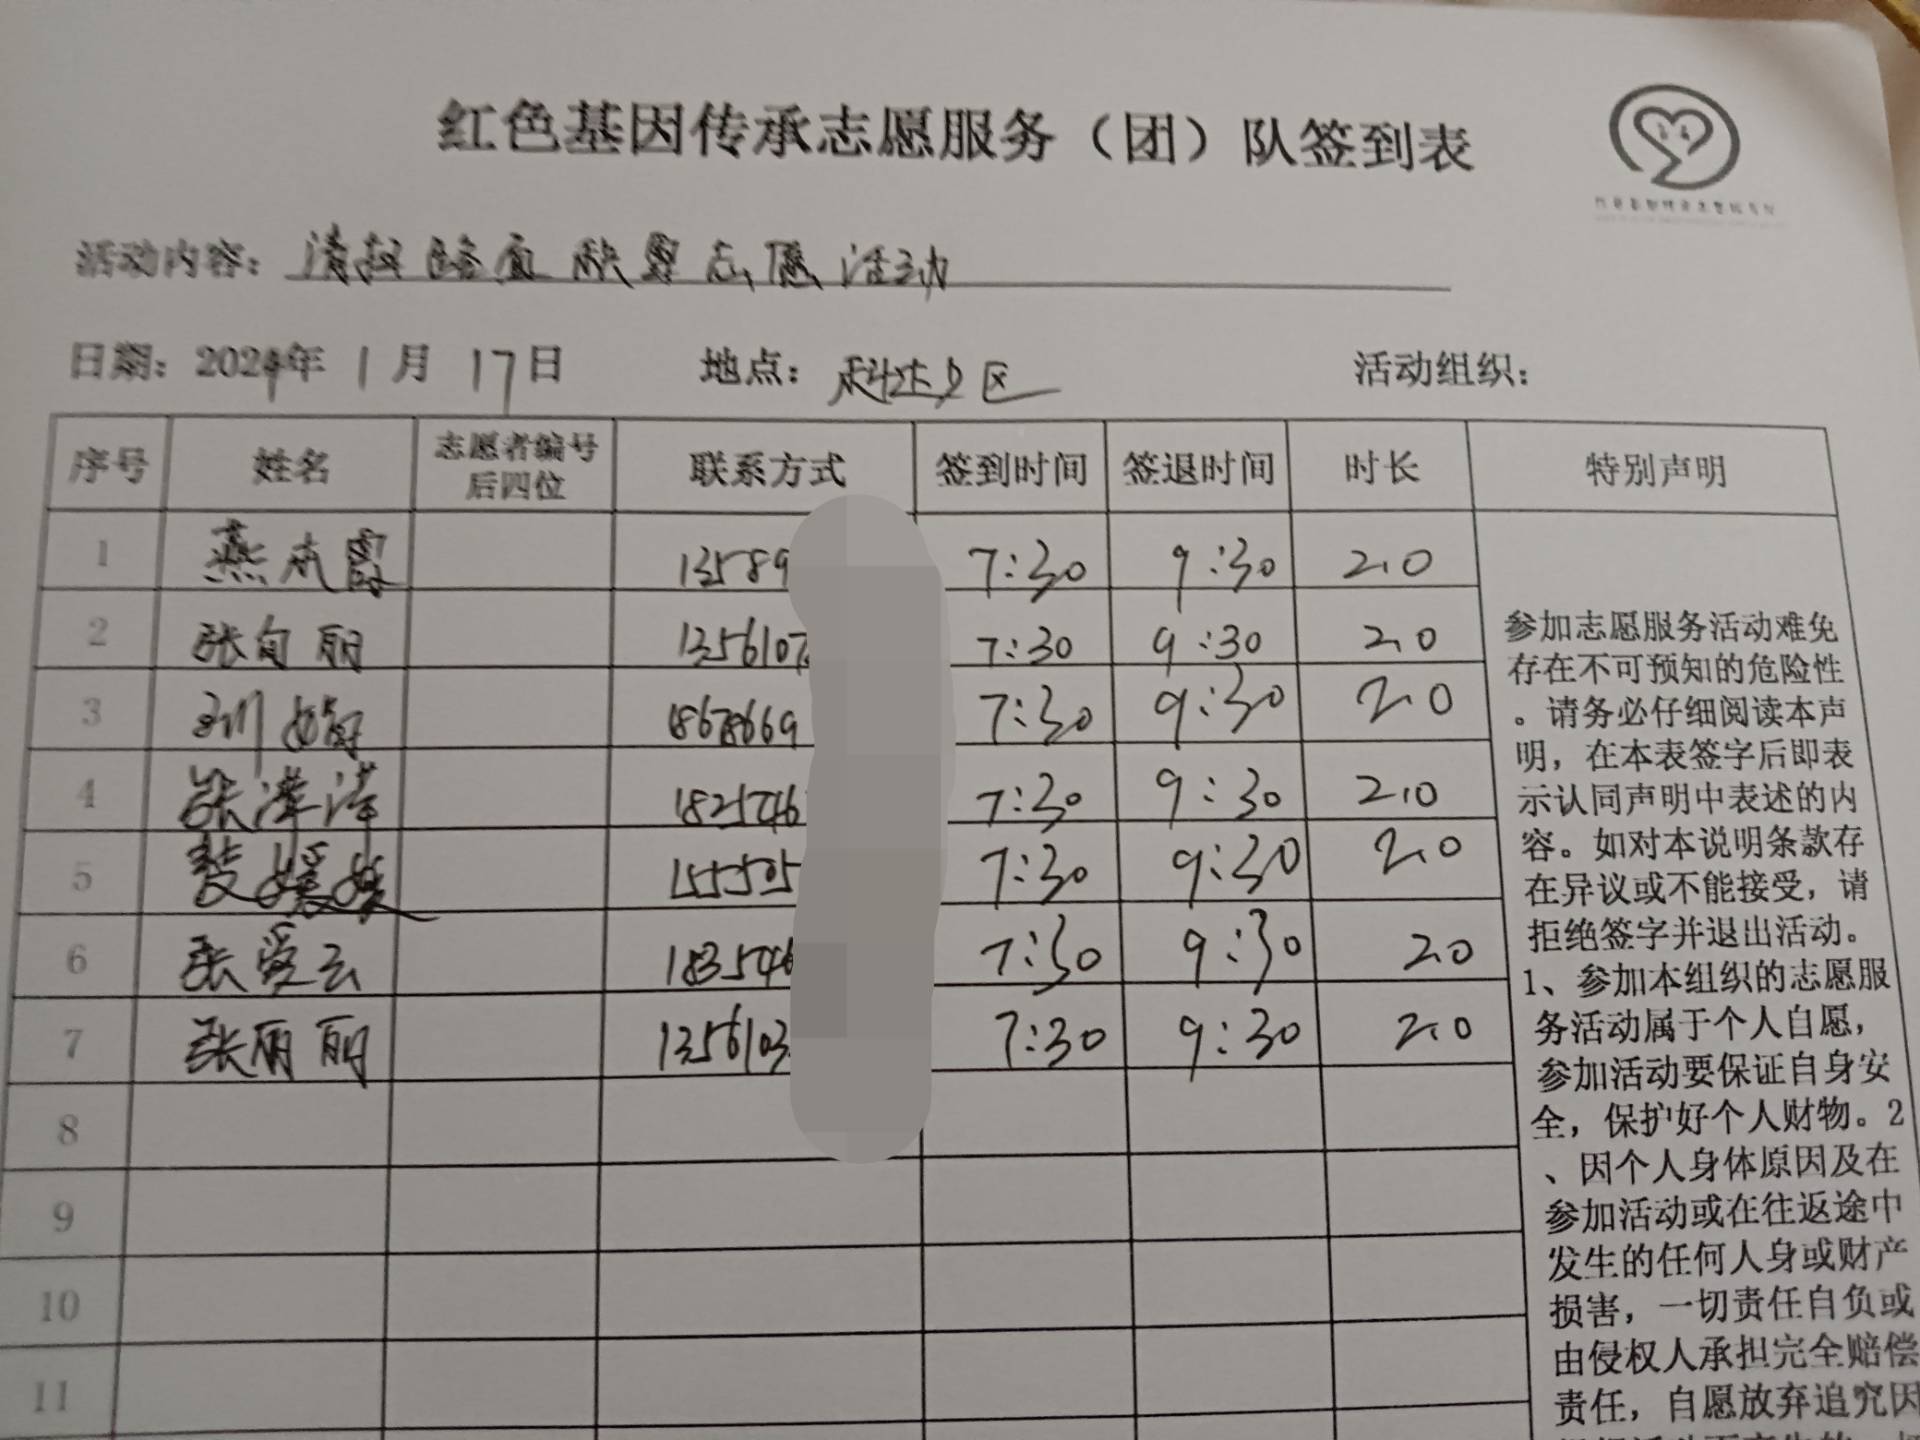 红色基因传承志愿服务（团）队签到表
活动内容：清扫路面积雪志愿活动
日期：2024年1月17日 地点：科达社区 活动组织：
序号 姓名 志愿者编号后四位 联系方式 签到时间 签退时间 时长 特别声明
1 燕本霞 13589 7:30 9:30 2.0
2 张自丽 1356107 7:30 9:30 2.0
3 刘 18678669 7:30 9:30 2.0
4 张泽泽 1825746 7:30 9:30 2.0
5 媛媛 155505 7:30 9:30 2.0
6 张爱云 1835746 7:30 9:30 2.0
7 张丽丽 1356103 7:30 9:30 2.0
8
9
10
11
参加志愿服务活动难免
存在不可预知的危险性
。请务必仔细阅读本声
明，在本表签字后即表
示认同声明中表述的内
容。如对本说明条款存
在异议或不能接受，请
拒绝签字并退出活动。
1、参加本组织的志愿服
务活动属于个人自愿，
参加活动要保证自身安
全，保护好个人财物。2
、因个人身体原因及在
参加活动或在往返途中
发生的任何人身或财产
损害，一切责任自负或
由侵权人承担完全赔偿
责任，自愿放弃追究因